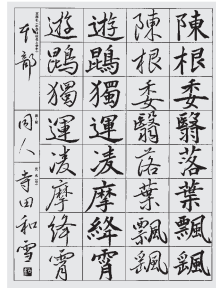 陳根委翳落葉飄颻
陳根委翳落葉飄颻
遊鵾獨運凌摩絳霄
遊鵾獨運凌摩絳霄
部
同人
寺田和雪